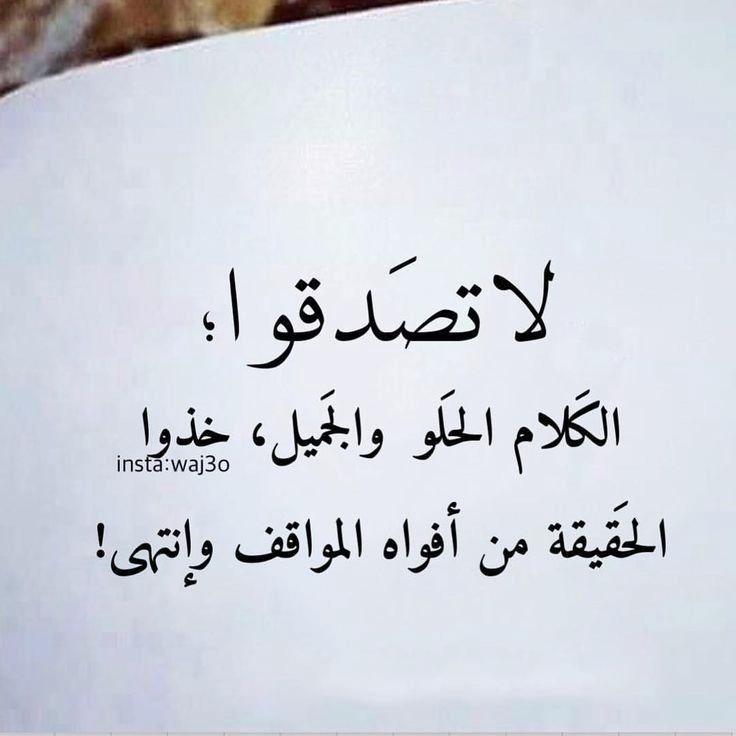 لا تصَدقوا؛
الكَلام الحَلو والجَميل، خذوا
insta:waj3o
الحَقيقة من أفواه المواقف وإنتهى!